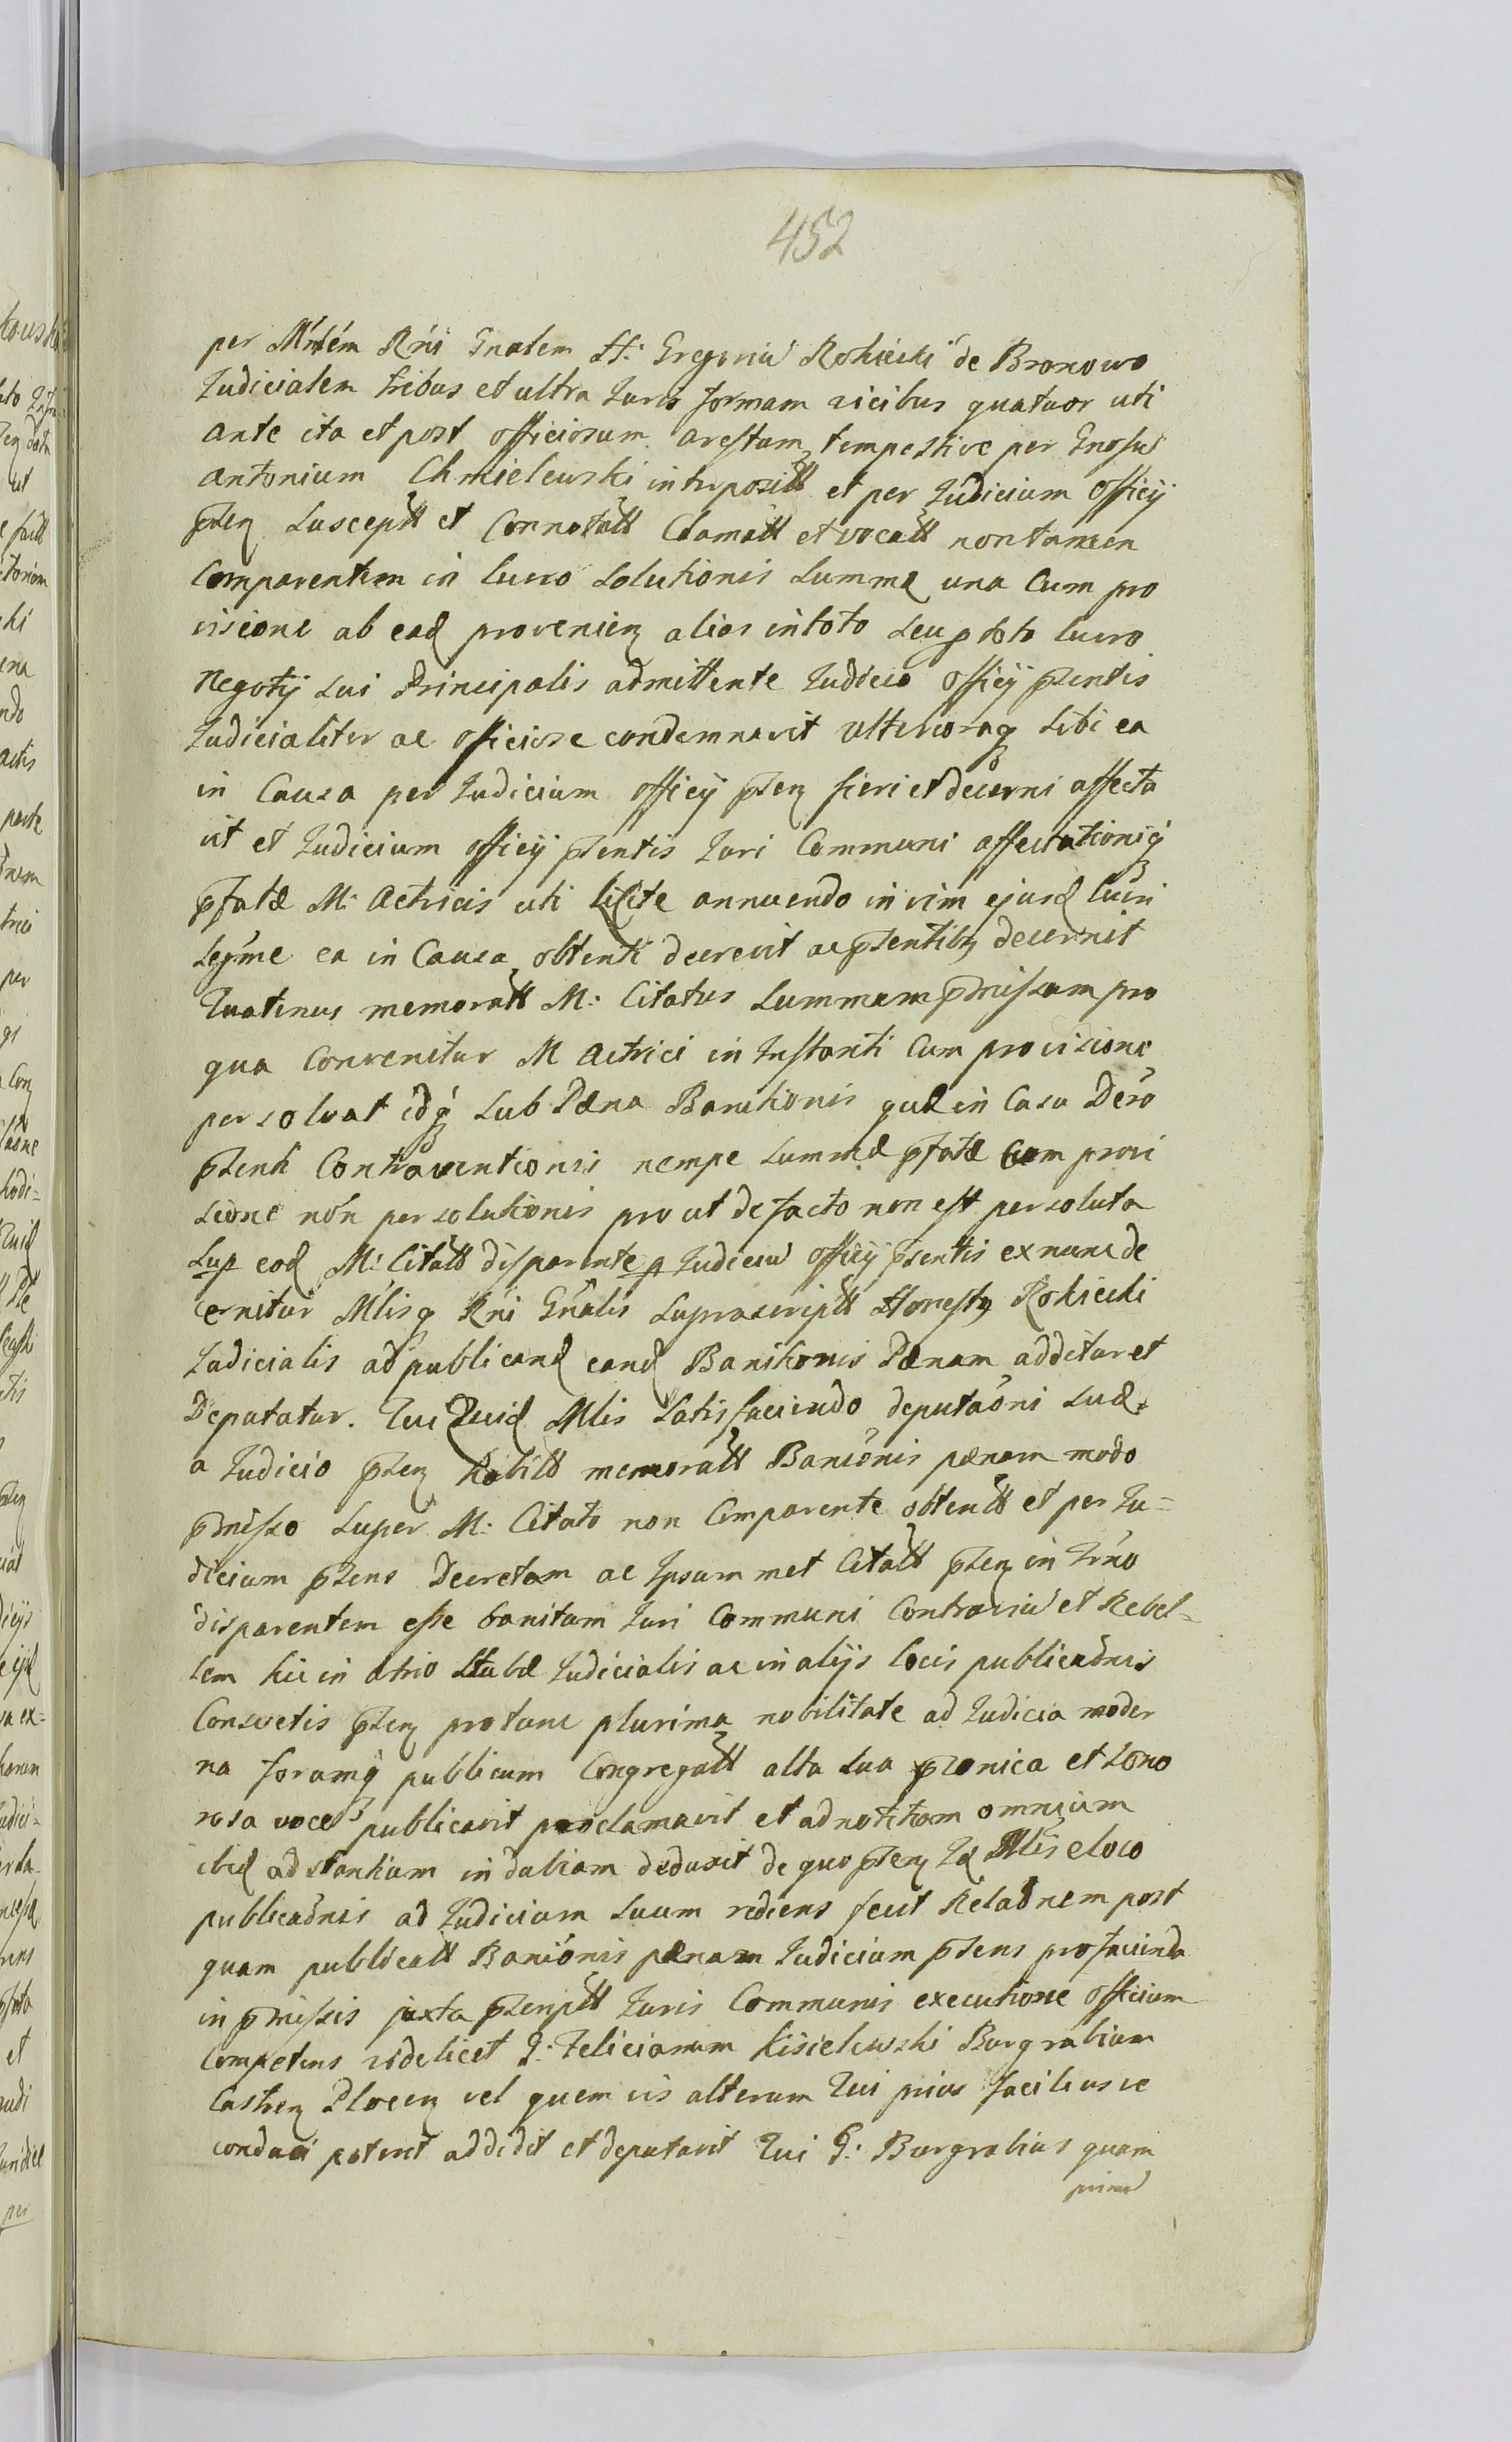 452
per Mństém Rńi Gnalem H: Gregoriū Rokicki de Bronowo
Iudicialem tribus et ultra Iuris formam vicibus quatuor uti
ante ita et post officiosum arestum tempestive per Gnosū
Antonium Chmielewski interpositt et per Iudicium Officij
pñsen Susceptt et Connotatt Clamatt et vocatt non tamen
Comparentem in lucro Solutionis Summæ una Cum pro
visione ab ead provenien alias in toto Seu p toto lucro
Negotij Sui Principalis admittente Iudicio Officij pñsentis
Iudicialiter ac officiose condemnavit ulterioraq Sibi ea
in Causa per Iudicium officij pñsen fieri et decerni affecta
vit et Iudicium officij pñsentis Iuri Communi affectationiq
pfatæ M: Actricis uti licite annuendo in vim ejusd lucri
legime ea in Causa obtenti decrevit ac pñsentibus decernit
Quatenus memoratt M: Citatus Summam pmissam pro
qua Convenitur M Actrici in Instanti Cum provisione
persolvat idq Sub Pæna Banitionis quæ in Casu Decro
pñsenti Contraventionis nempe Summæ pfatæ Cum provi
sione non persolutionis prout de facto non est persoluta
Sup eod M: Citatt disparente p Iudiciū Officij pñsentis ex nunc de
cernitur Mlisq Rńi Gnalis Suprascriptt Honestus Rokicki
Iudicialis ad publicand eand Banitionis Pænam additur et
Deputatur. Qui Quid Mlis Satisfaciendo deputaoni Suæ
a Iudicio pñsen habitt memoratt Banionis pænam modo
pmisso Super M: Citato non Comparente obtentt et per Iu=
dicium pñsens Decretam ac Ipsummet Citatt pñsen in Trno
disparentem esse banitum Iuri Communi Contrariū et Rebel=
lem hic in atrio Stubæ Iudicialis ac in alijs locis publicaonis
Consvetis pñsen protunc plurima nobilitate ad Iudicia moder
na forumq publicum Congregatt alta Sua pconica et Sono
rosa voce publicavit proclamavit et ad notitiam omnium
ibid adstantium indubiam deduxit de quo pñsen Id Mlis e loco
publicaonis ad Iudicium Suum rediens fecit Relaonem post
quam publicatt Banionis pænam Iudicium pñsens pro facienda
in pmissis juxta pscriptt Iuris Communis executione Officium
Competens videlicet G: Felicianum Kisielewski Burgrabium
Castren Plocen vel quemvis alterum Qui prius faciliusve
conduci poterit addidit et deputavit Qui G: Burgrabius quam
primū